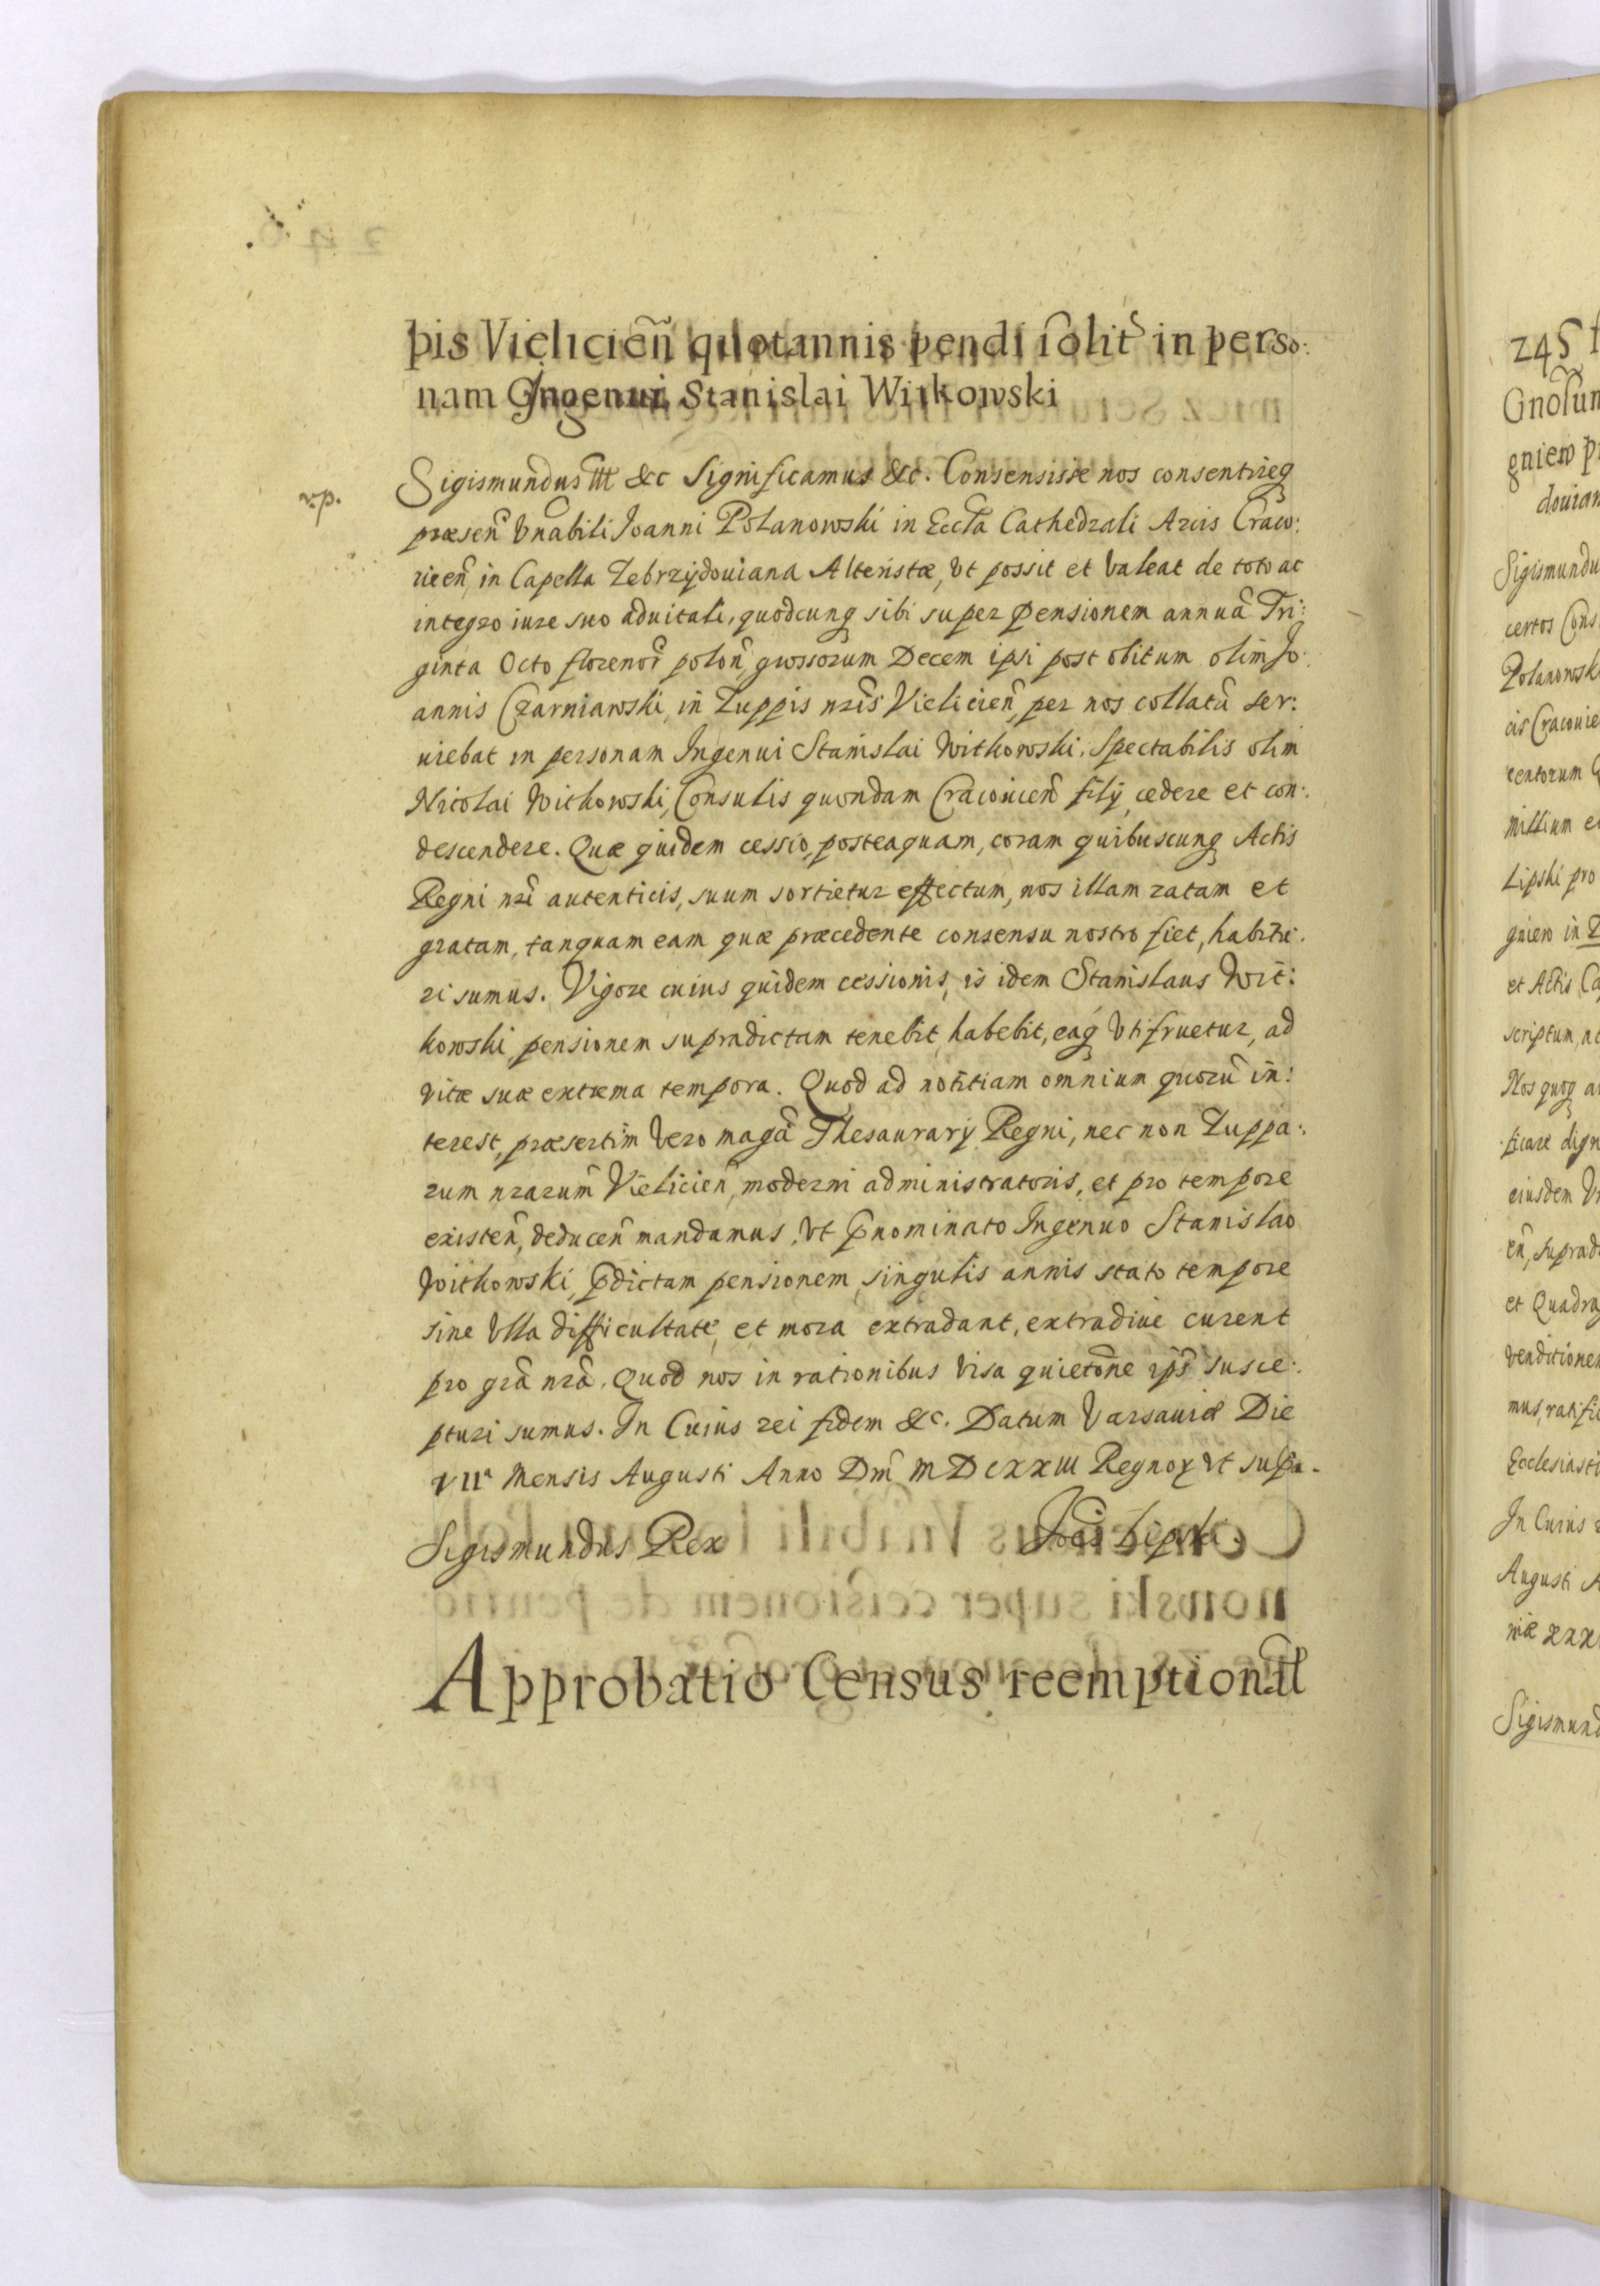 pis Vielicien̄ quotannis pendi ſolit̃ in perso:
nam Ingenui Stanislai Witkowski
vp.
Sigismundus III &c Significamus &c. Consensisse nos consentireq̃
præsen̄ Vn̄abili Joanni Polanowski in Eccl̃a Cathedrali Arcis Craco:
vien̄, in Capella Zebrzÿdoviana Altaristæ, Vt possit et valeat de toto ac
integro iure suo advitali, quodcunq̃ sibi super pensionem annuã Tri:
ginta Octo florenor̃ polon̄, grossorum Decem ipsi post obitum olim Jo:
annis Czarniawski, in Zuppis nr̃is Vielicien̄, per nos collatã ser:
viebat in personam Ingenui Stanislai Witkowski, Spectabilis olim
Nicolai Witkowski, Consulis quondam Cracovien̄ filÿ, cedere et con:
descendere. Quæ quidem cessio, posteaquam, coram quibuscunq̃ Actis
Regni nr̃i autenticis, suum sortietur effectum, nos illam ratam et
gratam, tanquam eam quæ præcedente consensu nostro fiet, habitu:
ri sumus. Vigore cuius quidem cessionis, is idem Stanislaus Wit:
kowski, pensionem supradictam tenebit, habebit, eaq̃ Vtifruetur, ad
vitæ suæ extrema tempora. Quod ad notitiam omnium quorũ in:
terest, præsertim Vero magcĩ Thesaurarÿ Regni, nec non Zuppa:
rum nrarum̃ Vielicien̄, moderni administratoris, et pro tempore
existen̄, deducen̄ mandamus, Vt p̃nominato Ingenuo Stanislao
Witkowski, p̃dictam pensionem, singulis annis stato tempore
sine Vlla difficultate, et mora extradant, extradive curent
pro gr̃a nr̃a. Quod nos in rationibus visa quietõne ip̃s susce:
pturi sumus. In Cuius rei fidem &c. Datum Varsaviæ Die
VIIa Mensis Augusti Anno Dn̄i MDCXXIII Regnoꝝ vt supra.
Sigismundus Rex Joẽs Lipski
Approbatio Census reemptional̃
245